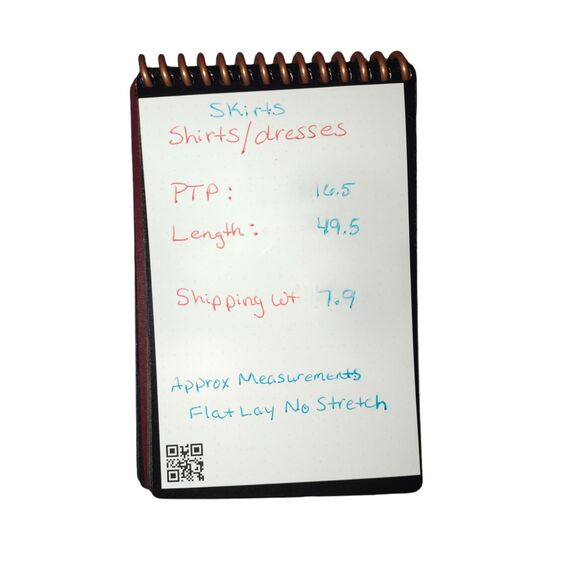 SKirts
Shirts/dresses
PTP: 16.5
Length: 49.5
Shipping wt 7.9
Approx Measurements
Flat Lay No Stretch